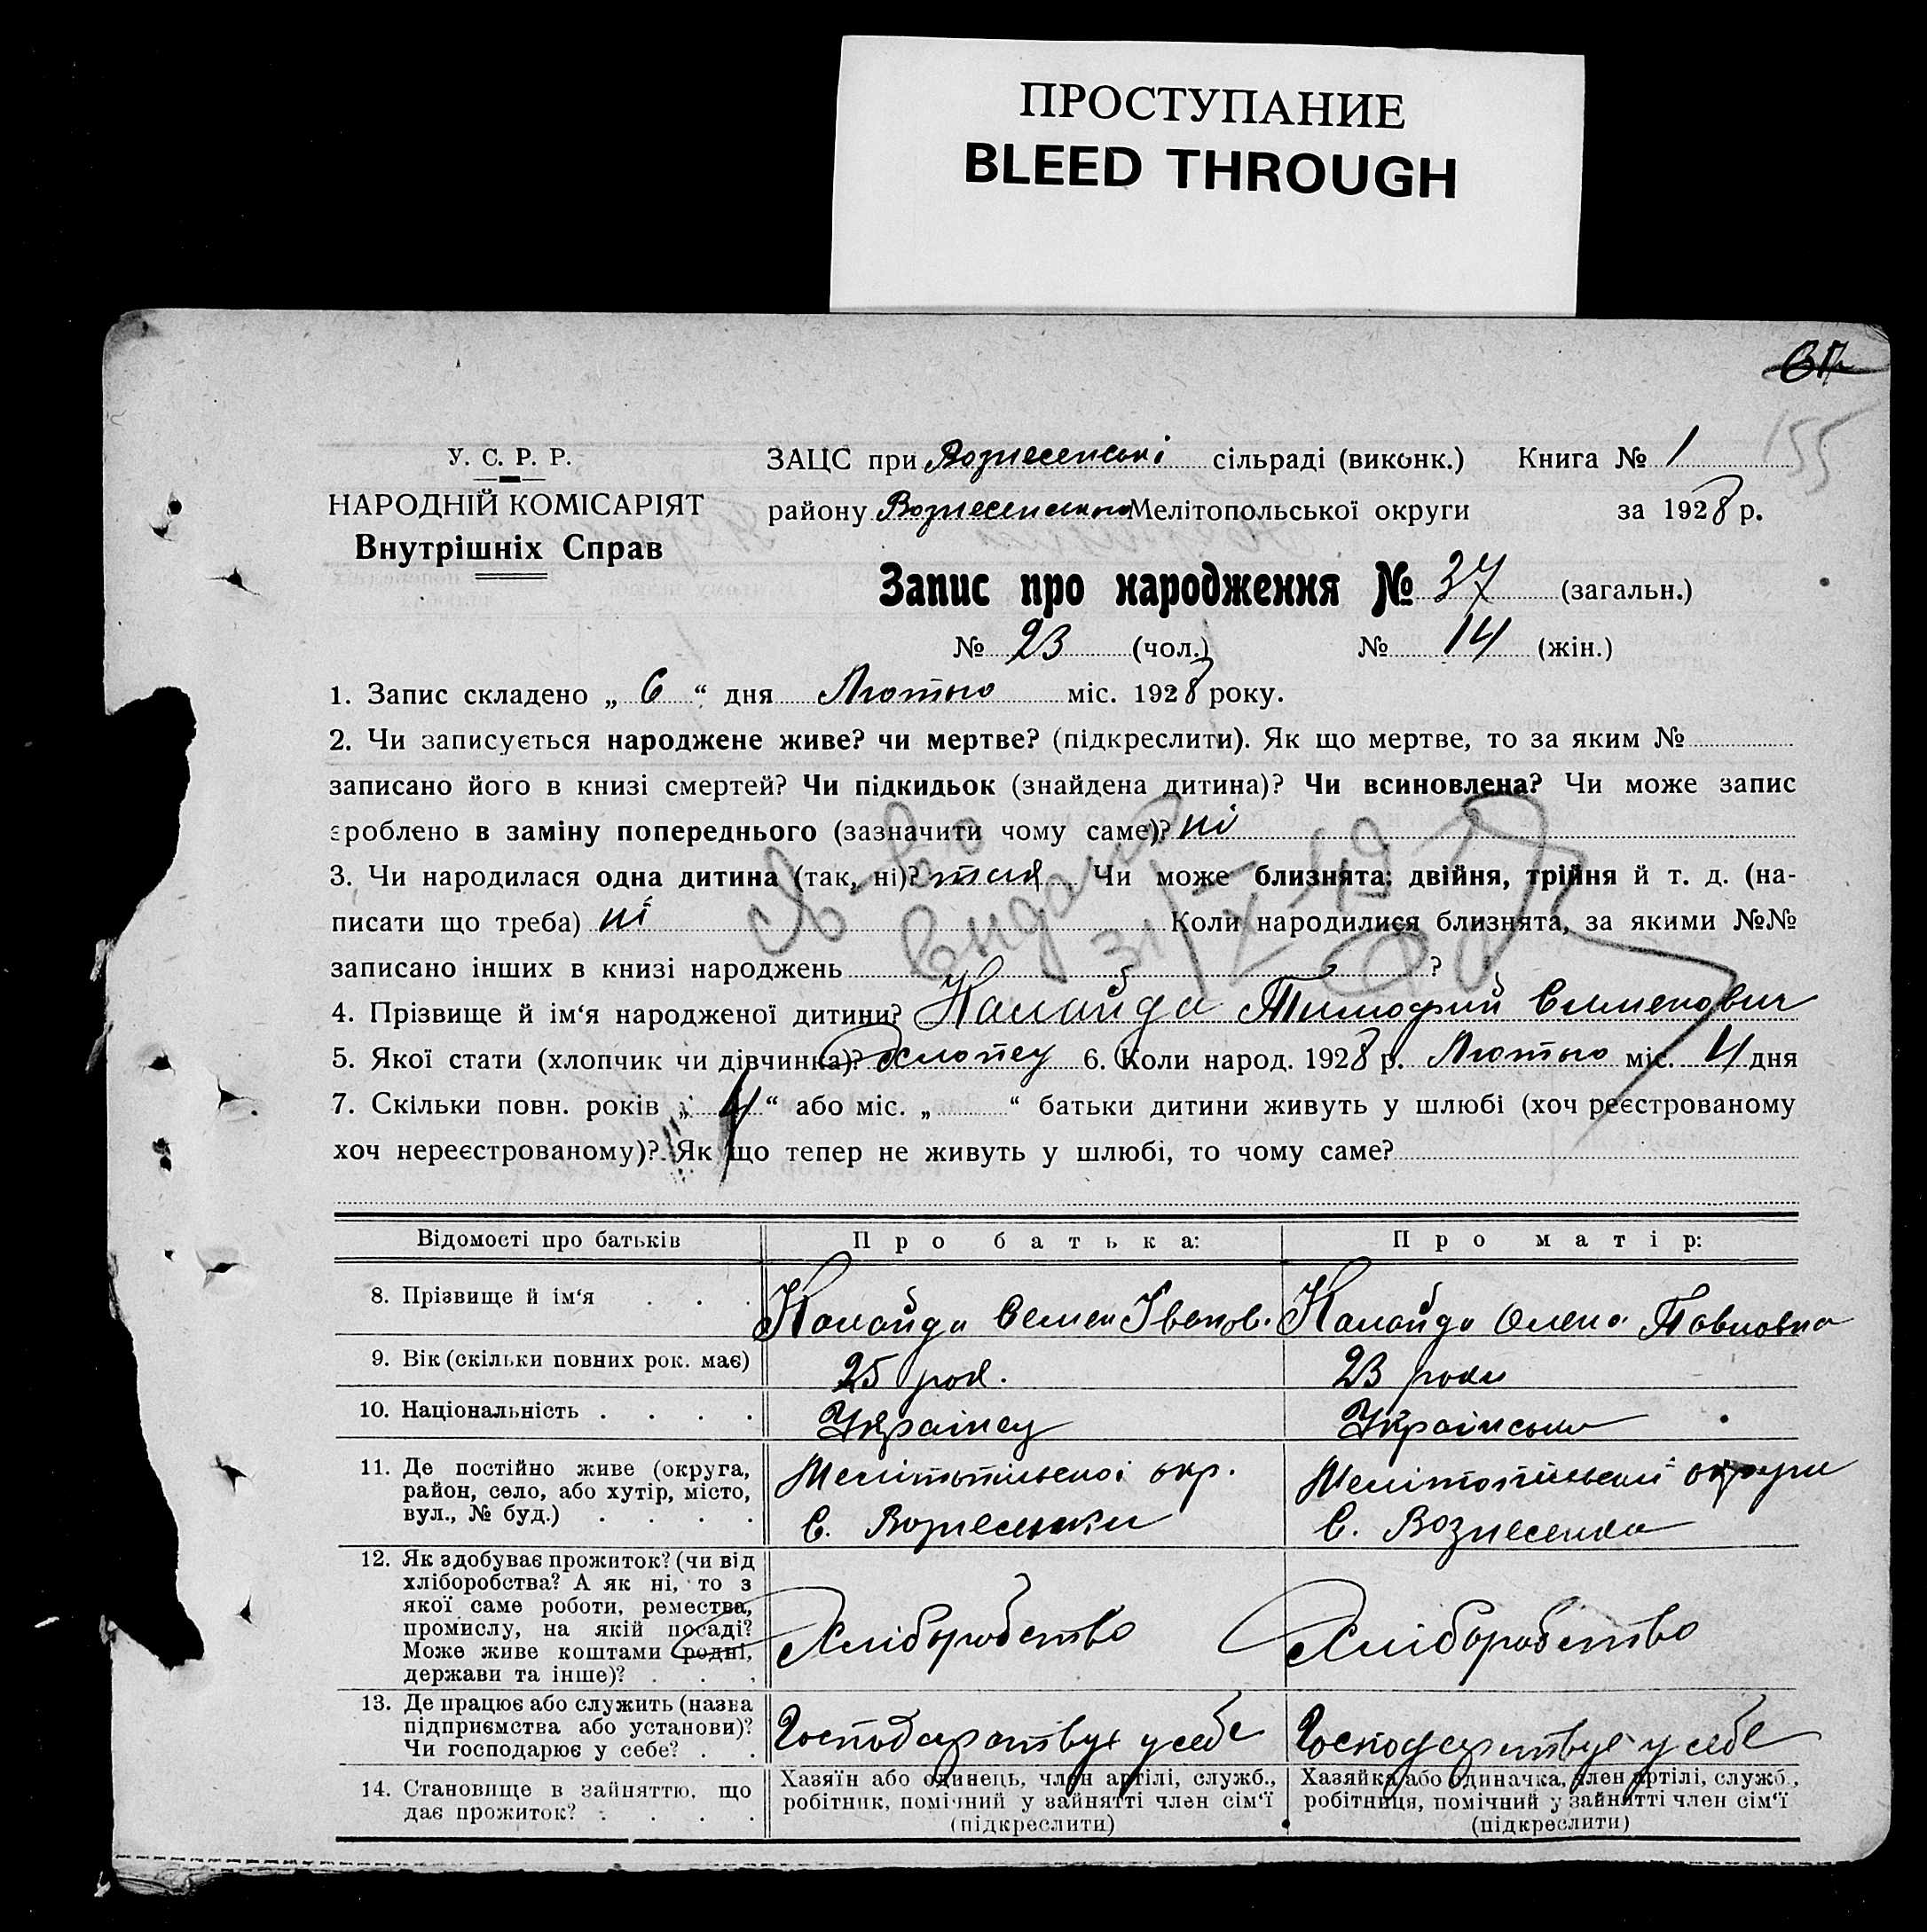 ПРОСТУПАНИЕ
BLEED THROUGH
155
У. С. Р. Р.
НАРОДНІЙ КОМІСАРІЯТ
Внутрішніх Справ
ЗАЦС при Вознесенські сільраді (виконк.) Книга № 1
району Вознесенського Мелітопольської округи за 1928 р.
Запис про народження № 37 (загальн.)
№ 23 (чол.) № 14 (жін.)
1. Запис складено „ 6 “ дня Лютого міс. 1928 року.
2. Чи записується народжене живе? чи мертве? (підкреслити). Як що мертве, то за яким №
записано його в книзі смертей? Чи підкидьок (знайдена дитина)? Чи всиновлена? Чи може запис
зроблено в заміну попереднього (зазначити чому саме)? ні
3. Чи народилася одна дитина (так, ні)? так Чи може близнята: двійня, трійня й т. д. (на-
писати що треба) ні Коли народилися близнята, за якими №№
записано інших в книзі народжень ?
4. Прізвище й ім‘я народженої дитини? Калайда Тимофий Семенович
5. Якої стати (хлопчик чи дівчинка)? Хлопец 6. Коли народ. 1928 р. Лютого міс. 4 дня
7. Скільки повн. років „ 4 “ або міс. „ “ батьки дитини живуть у шлюбі (хоч реєстрованому
хоч нереєстрованому)? Як що тепер не живуть у шлюбі, то чому саме?
Відомості про батьків Про батька: Про матір:
8. Прізвище й ім‘я . . . Калайда Семен Іванов. Калайда Олена Павловна
9. Вік (скільки повних рок. має) 25 рок. 23 роки
10. Національність . . . . Українец Українська
11. Де постійно живе (округа,
район, село, або хутір, місто,
вул., № буд.) . . . .
Мелітопільскої окр.
С. Вознесенки
Мелітопільскої округи
С. Вознесенка
12. Як здобуває прожиток? (чи від
хліборобства? А як ні, то з
якої саме роботи, ремества,
промислу, на якій посаді?
Може живе коштами родні,
держави та інше)? . . .
Хліборобство Хліборобство
13. Де працює або служить (назва
підприємства або установи)?
Чи господарює у себе? . .
Господарствує у себе Господарствує у себе
14. Становище в зайняттю, що
дає прожиток? . . . .
Хазяїн або одинець, член артілі, служб.,
робітник, помічний у зайнятті член сім‘ї
(підкреслити)
Хазяйка або одиначка, член артілі, служб.,
робітниця, помічний у зайнятті член сім‘ї
(підкреслити)